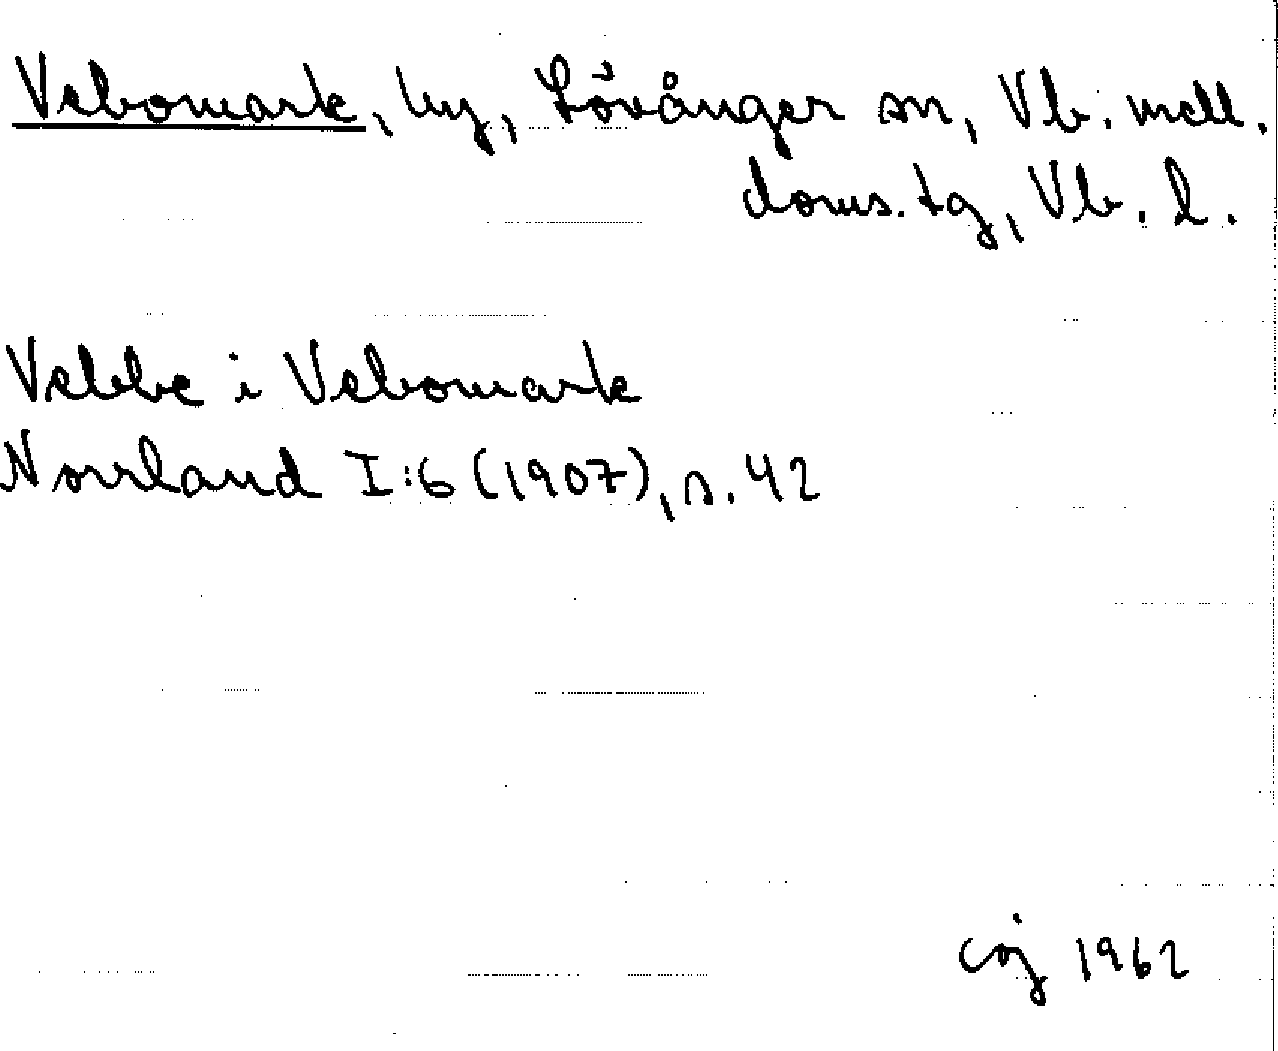 Vebomark, by, Lövånger sn, Vb. mell.
doms.tg, Vb. l.
Vebbe i Vebomark
Norrland I:6 (1907), s. 42
1962